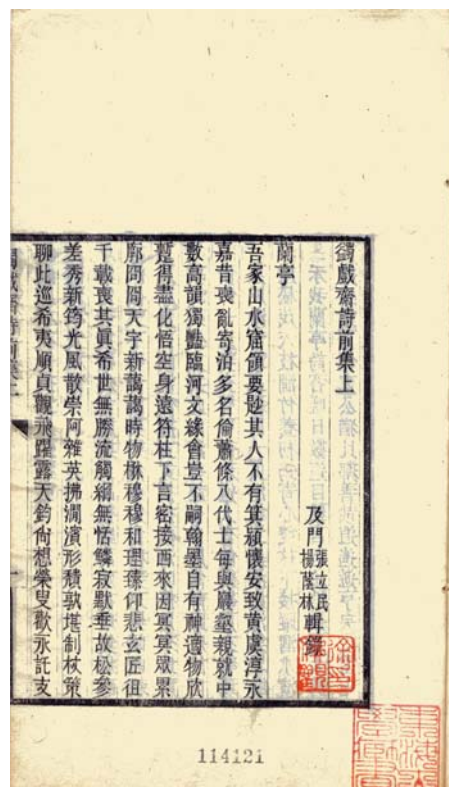 蠲戲齋詩前集上
及門 張立民 楊蔭林 輯錄
蘭亭
吾家山水窟領要尠其人不有箕潁懷安致黃虞淳永
嘉昔喪亂寄泊多名倫蕭條八代士每與巖壑親就中
數高韻獨豔臨河文緣會豈不嗣翰墨自有神適物欣
蹔得盡化悟空身遠符柱下言密接西來因冥冥眾累
廓冏冏天宇新藹藹時物楙穆穆和理臻仰悲玄匠徂
千載喪其眞希世無勝流觸網無恬鱗寂默垂故松參
差秀新筠光風散崇阿雜英拂澗濱形積孰堪制杖策
聊此巡希夷順貞觀飛躍露天鈞尙想榮叟歡永託支
114121